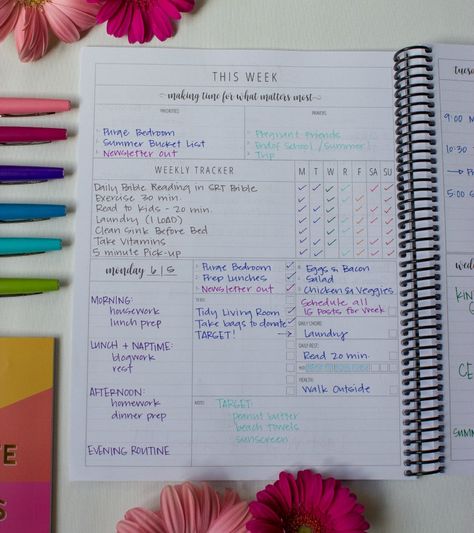 THIS WEEK
making time for what matters most
PRIORITIES
PRAYERS
Purge Bedroom
Summer Bucket List
Newsletter Out
Pregnant Friends
End of School/Summer!
Trip
WEEKLY TRACKER
M T W R F SA SU
Daily Bible Reading in SRT Bible
Exercise 30 min.
Read to Kids - 20 min.
Laundry (1 LOAD)
Clean Sink Before Bed
Take Vitamins
5 minute Pick-up
monday 6/5
Purge Bedroom
Prep Lunches
Newsletter Out
Eggs & Bacon
Salad
Chicken & Veggies
MORNING:
housework
lunch prep
LUNCH + NAPTIME:
blogwork
rest
AFTERNOON:
homework
dinner prep
EVENING ROUTINE
Tidy Living Room
Take bags to donate
TARGET!
Schedule all
15 Posts for Week
DAILY CHORE:
Laundry
DAILY REST:
Read 20 min.
HEALTH:
Walk Outside
TARGET:
peanut butter
beach towels
sunscreen
9:00
10:30
5:00